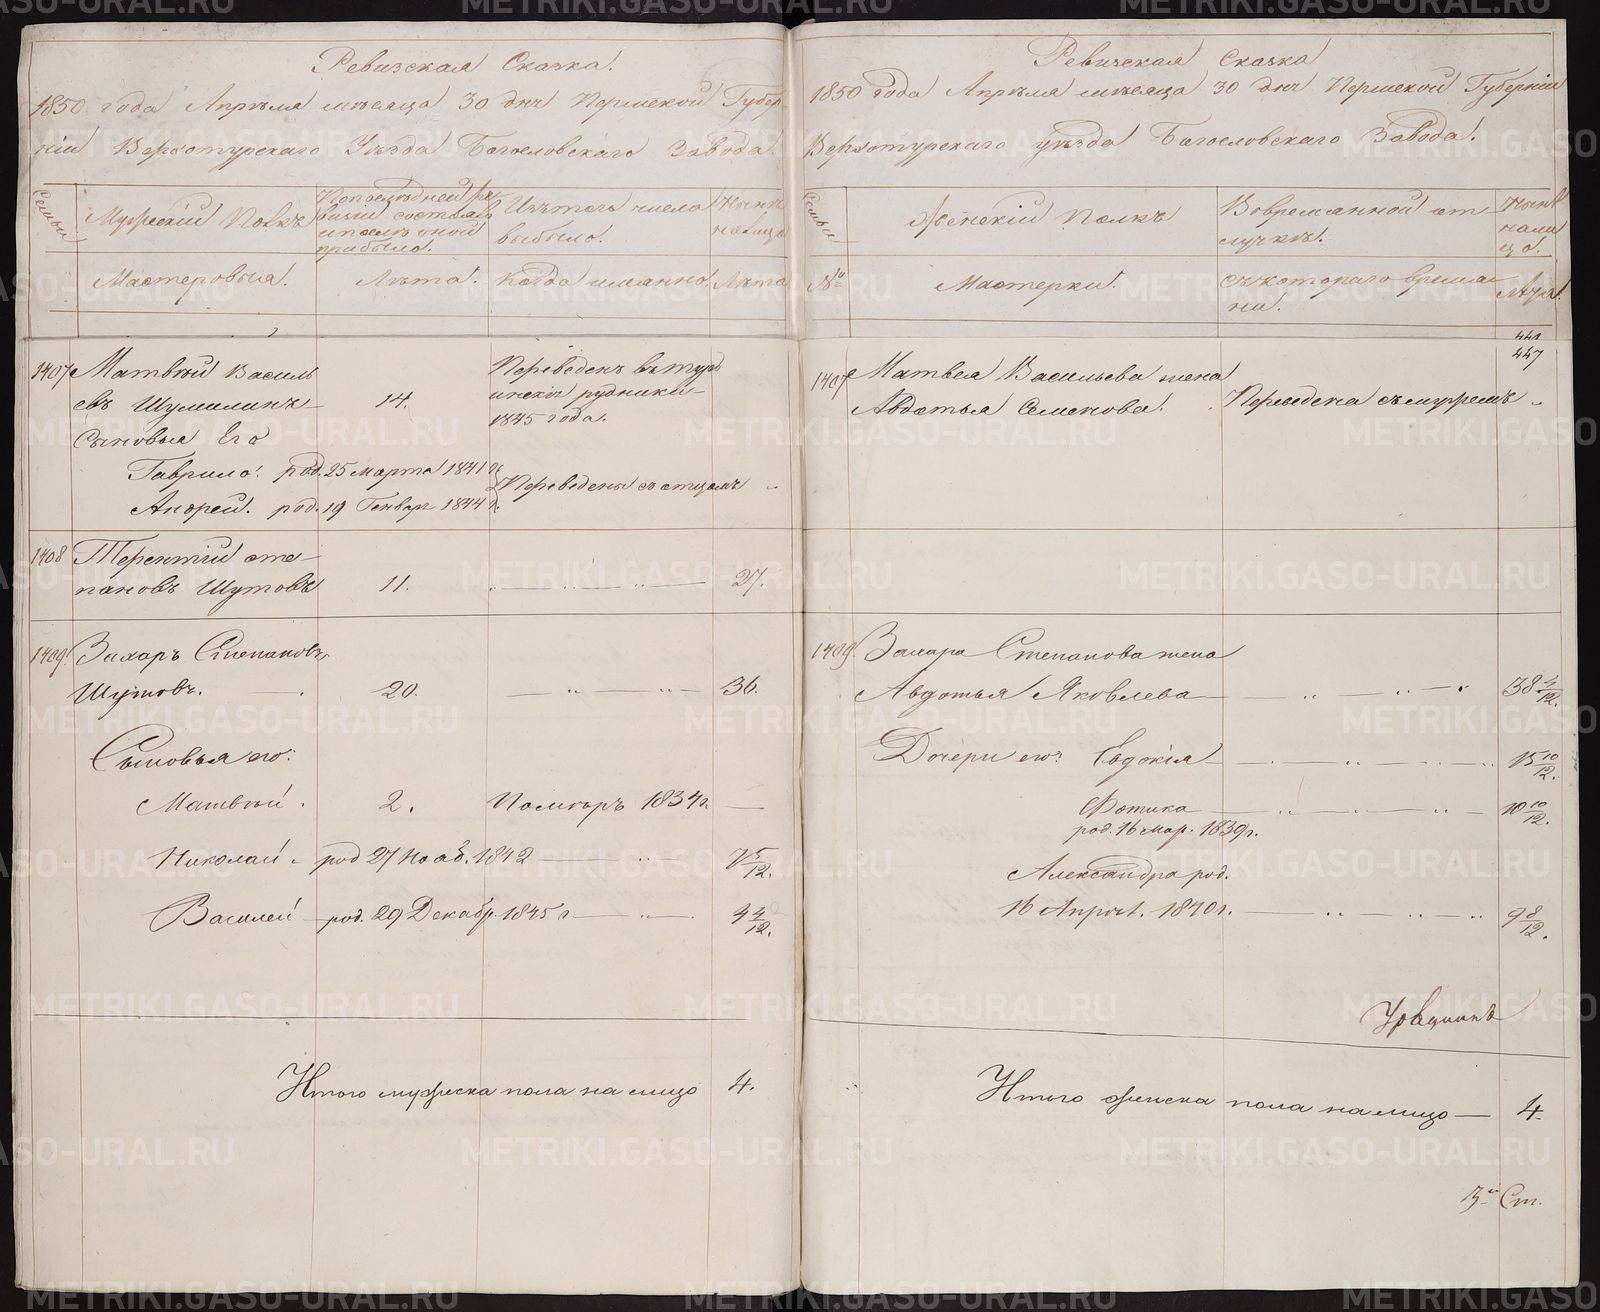 Ревизская Сказка.
1850 года Апреля месяца 30 дня Пермской Губер-
нiи Верхотурскаго Уѣзда Богословскаго Завода.
Семьи
Мужескiй Полъ
По последней ре-
визiи состояло
и после оной
прибыло.
Изъ того числа
выбыло.
Ныне
на лицо
Мастеровыя.
Лѣта.
Когда именно.
Лѣта
1407
Матвѣй Василь
евъ Шумилинъ
14.
Переведенъ въ турь
инскiя рудники
1845 года.
Сыновья Его
Гаврило. род. 25 марта 1841 г.
Андрей. род. 19 Генвар 1844 г.
Переведены съ отцомъ
1408
Терентiй сте-
пановъ Шутовъ
11.
27.
1409.
Захаръ Степановъ
Шутовъ.
20.
36.
Сыновья его:
Матвѣй.
2.
Помѣръ 1834 г.
Николай. род 27 Нояб. 1842
7 5/12.
Василей род. 29 Декабр. 1845 г
4 4/12.
Итого мужеска пола на лицо 4.
Ревизская Сказка
1850 года Апрѣля месяца 30 дня Пермской Губернiи
Верхотурскаго уѣзда Богословскаго Завода.
Семьи
Женскiй Полъ
Во временной от
лучкѣ.
Ныне
нали
цо.
№
Мастерки.
Съ котораго време
ни.
Лѣта.
441
447
1407
Матвея Васильева жена
Авдотья Семенова.
Переведена съ мужемъ
1409.
Захара Степанова жена
Авдотья Яковлева
38 4/12.
Дочери его: Евдокiя
15 10/12.
Фотика
10 10/12.
род. 16 мар. 1839 г.
Александра род.
16 Апрѣл. 1840 г.
9 8/12.
Итого женска пола на лицо 4.
3й Ст.
METRIKI.GASO-URAL.RU